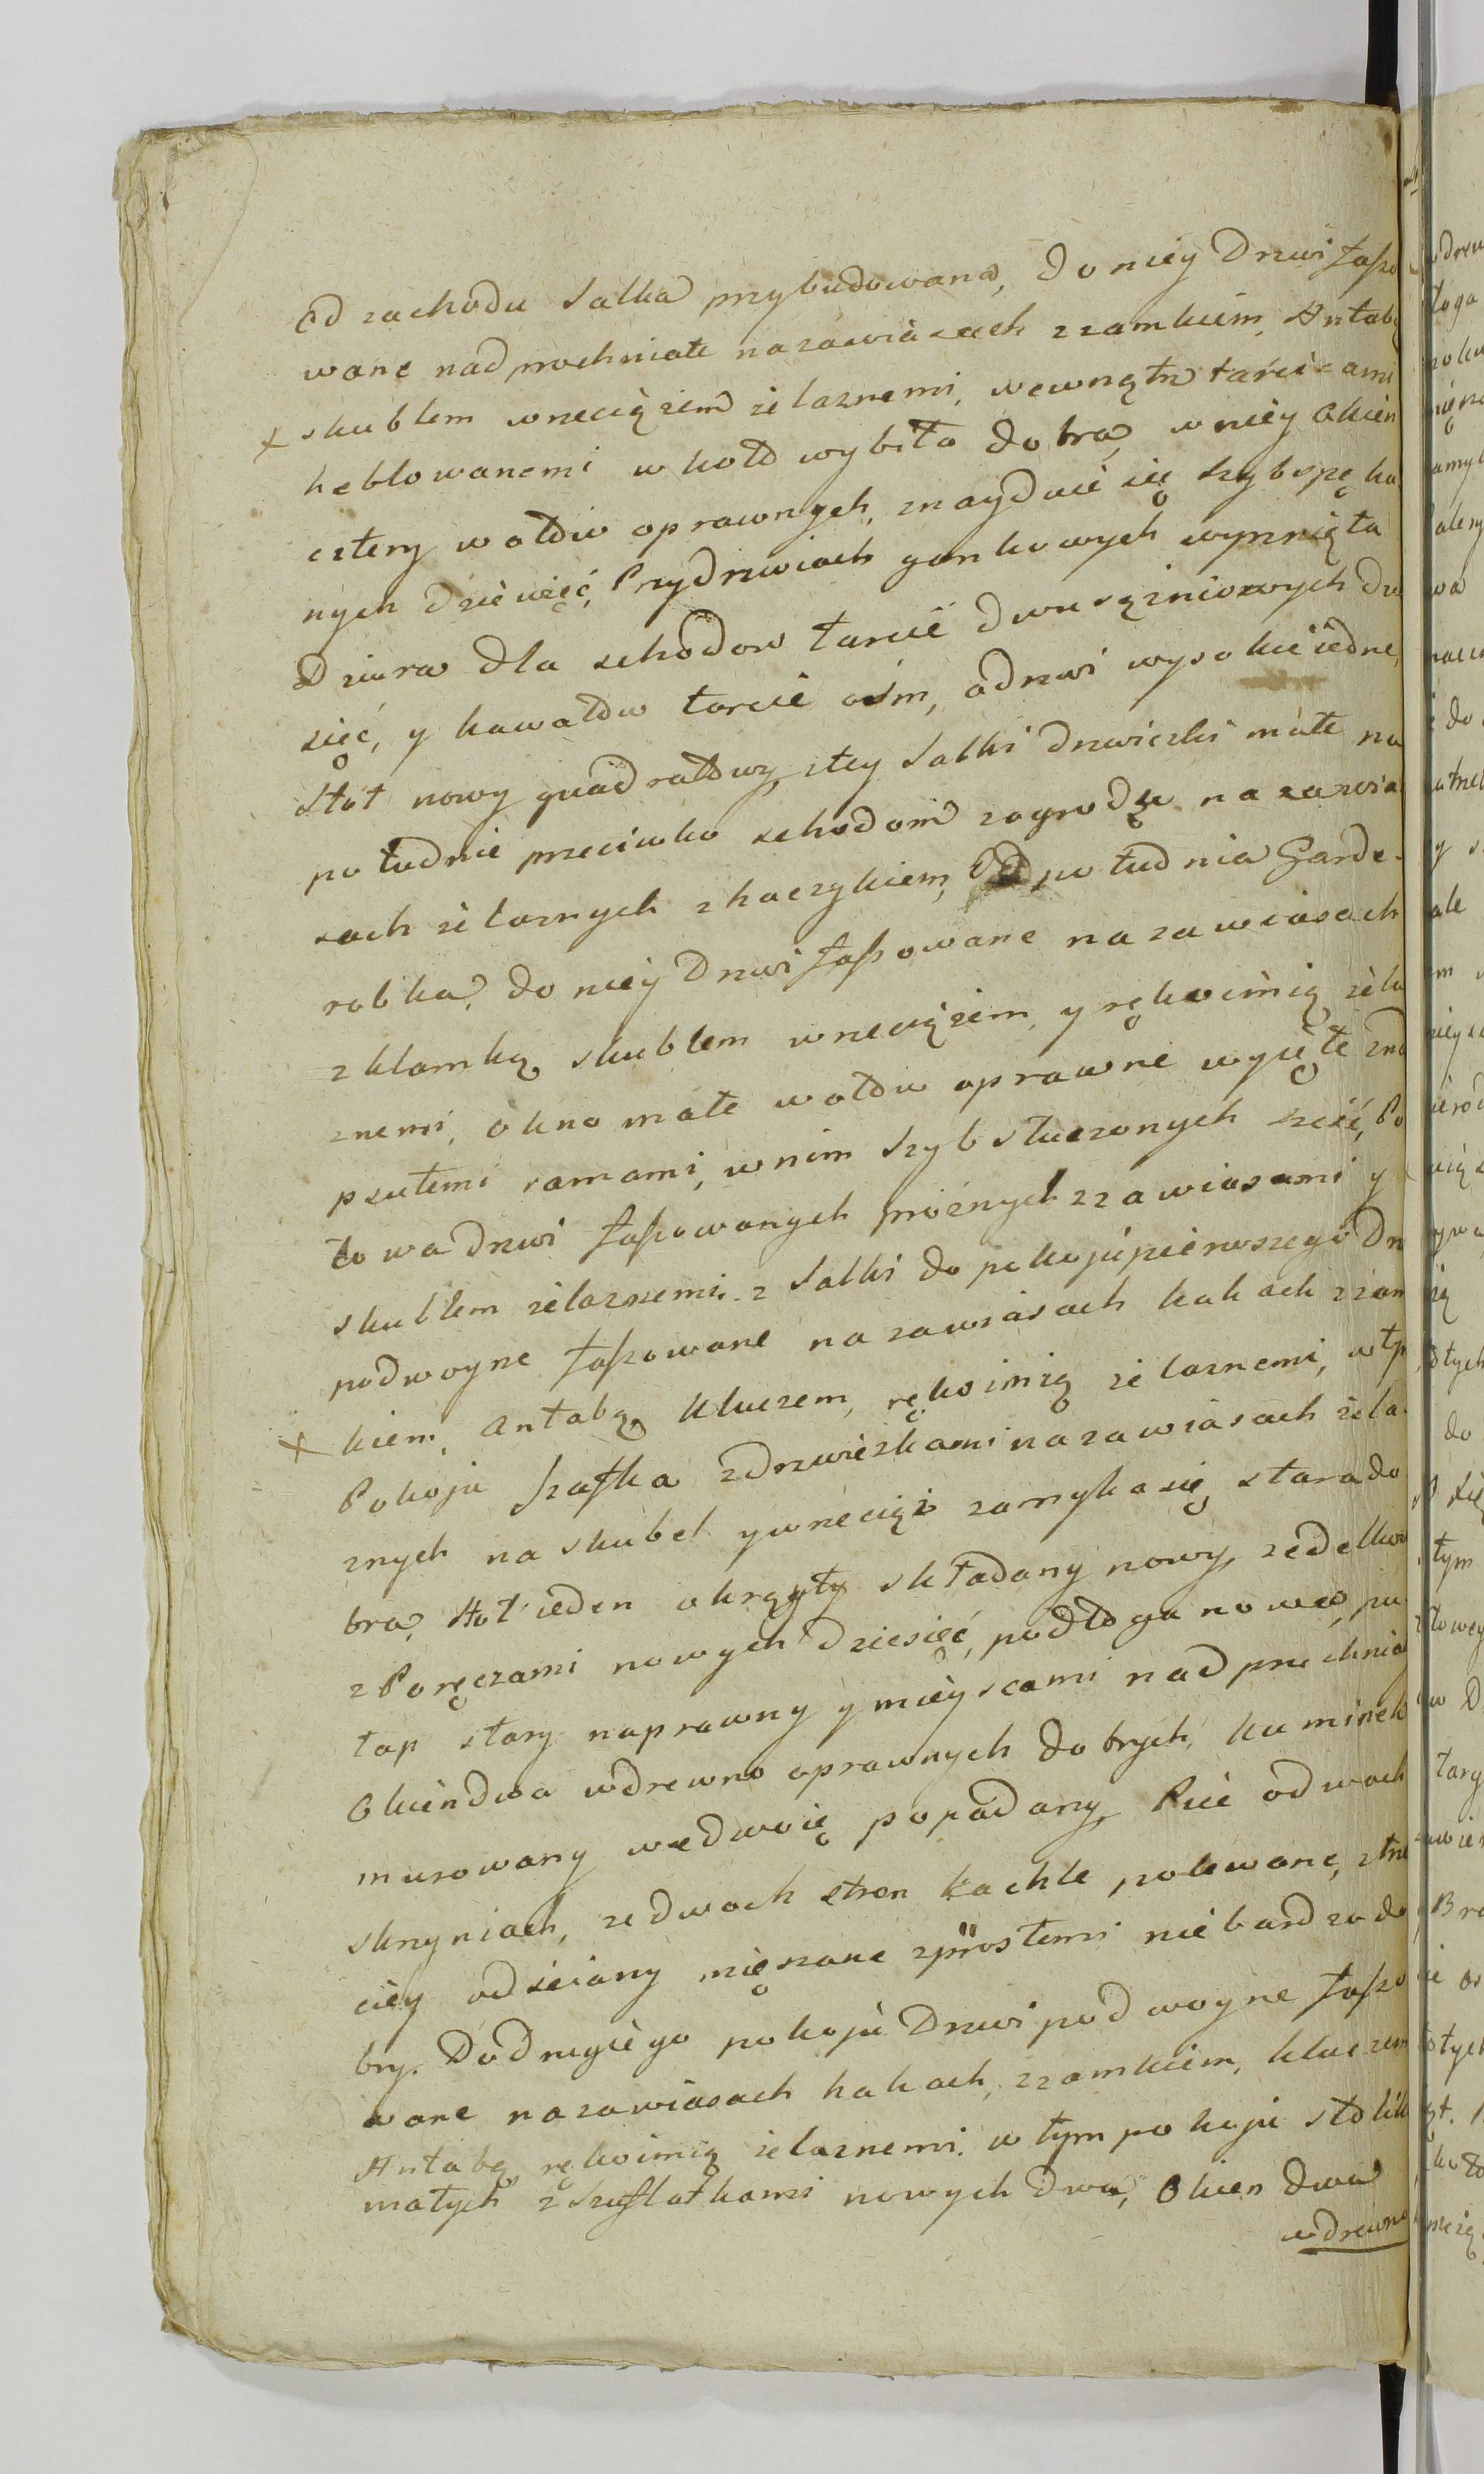 Od zachodu Salka przybudowana, do niey Drzwi faszo
wane nadprochniałe na zawiasach z zamkiem, Antabą
skublem wrzeciązem żelaznemi, wewnątrz tarcicami
heblowanemi w koło wybita dobra, w niey Okien
cztery w ołów oprawnych, znayduie się Szyb spęka
nych dziewięć, Przy drzwiach gankowych wyrznięta
Dziura dla schodow tarcic dwusążniowych dzie
sięć, y kawałow tarcic ośm, odrzwi wysokie iedne,
Stoł nowy quadratowy, z tey Salki drzwiczki małe na
południe przeciwko schodom zagrodzę na zawia
sach żelaznych z haczykiem, Od południa Garde-
robka, do niey Drzwi faszowane na zawiasach
z klamką skublem wrzeciązem, y rękoimią żela
znemi, okno małe w ołow oprawne wyięte znad
psutemi ramami, w nim Szyb stłuczonych sześć, Po
łowa drzwi faszowanych prożnych z zawiasami y
skublem żelaznemi. z Salki do pokoju pierwszego Drz
podwoyne faszowane na zawiasach hakach z zam
kiem, antabą, kluczem, rękoimią żelaznemi, w tym
Pokoju szafka z drzwiczkami na zawiasach żela-
znych na skubel y wrzeciąż zamyka się, stara do
bra, Stoł ieden okrągły składany nowy, zedelkow
z Poręczami nowych dziesięć, podłoga nowa, pu
łap stary naprawny y mieyscami nadpruchnia
Okien dwa w drewno oprawnych dobrych, kuminek
murowany we dwoię popadany, Piec o dwoch
skrzyniach, ze dwoch stron kachle polewane, z trze
ciey od ściany mięszane z prostemi nie bardzo do
bry. Do drugiego pokoju Drzwi podwoyne faszo
wane na zawiasach hakach, z zamkiem, kluczem
Antabą, rękoimią żelaznemi. w tym pokoju stolik
małych z Szufladkami nowych dwa, Okien dwa
w drewno